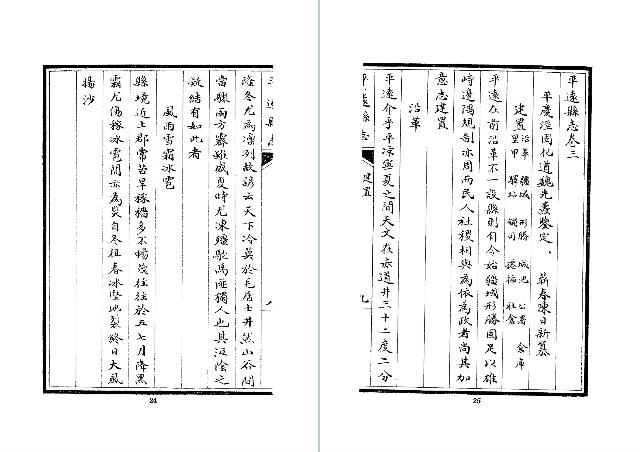 平遠縣志卷三
平慶涇固化道魏光燾鑒定、 蘄春陳日新纂
建置 沿革 疆域 形勝 城池 公署 倉庫
里甲 驛站 鋪司 橋樑 社倉
平遠在前沿革不一設縣則自今始疆域形勝固足以雄
峙邊隅規制亦周而民人社稷相與為依為政者尚其加
意志建置
沿革
平遠介乎平凉寧夏之間天文在赤道井三十二度二分
平遠縣志
建置
九
25
平遠縣志
八
隆冬尤為凛列故諺云天下冷莫於毛居士井然山谷間
當縣南方霧雖盛夏時尤凍殭駝馬匪獨人也其沍陰之
欬結有如此者
風雨雪霜冰雹
縣境近上郡常苦旱稼穡多不暢茂往往於五七月降黑
霜尤傷稼冰雹間亦為災自冬徂春冰堅地裂終日大風
揚沙
24